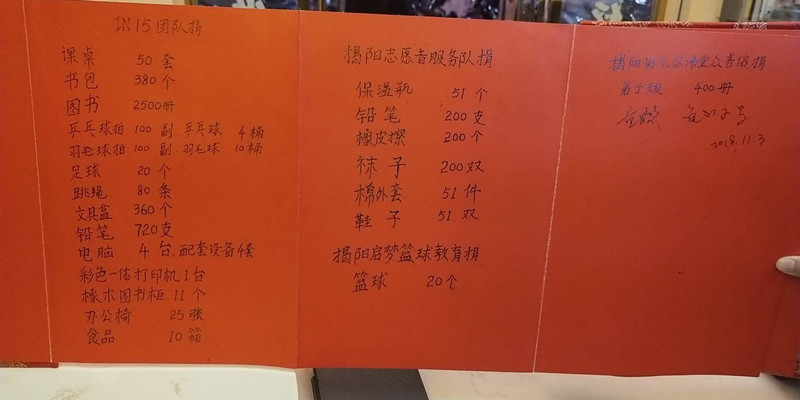 IN15团队捐
课桌 50套
书包 380个
图书 2500册
乒乓球拍 100副 乒乓球 4桶
羽毛球拍 100副.羽毛球 10桶
足球 20个
跳绳 80条
文具盒 360个
铅笔 720支
电脑 4台.配套设备4套
彩色一体打印机1台
橡木图书柜 11个
办公椅 25张
食品 10箱
揭阳志愿者服务队捐
保温瓶 51个
铅笔 200支
橡皮擦 200个
袜子 200双
棉外套 51件
鞋子 51双
揭阳启梦篮球教育捐
篮球 20个
揭阳
众善信捐
弟子规 400册
2018.11.3